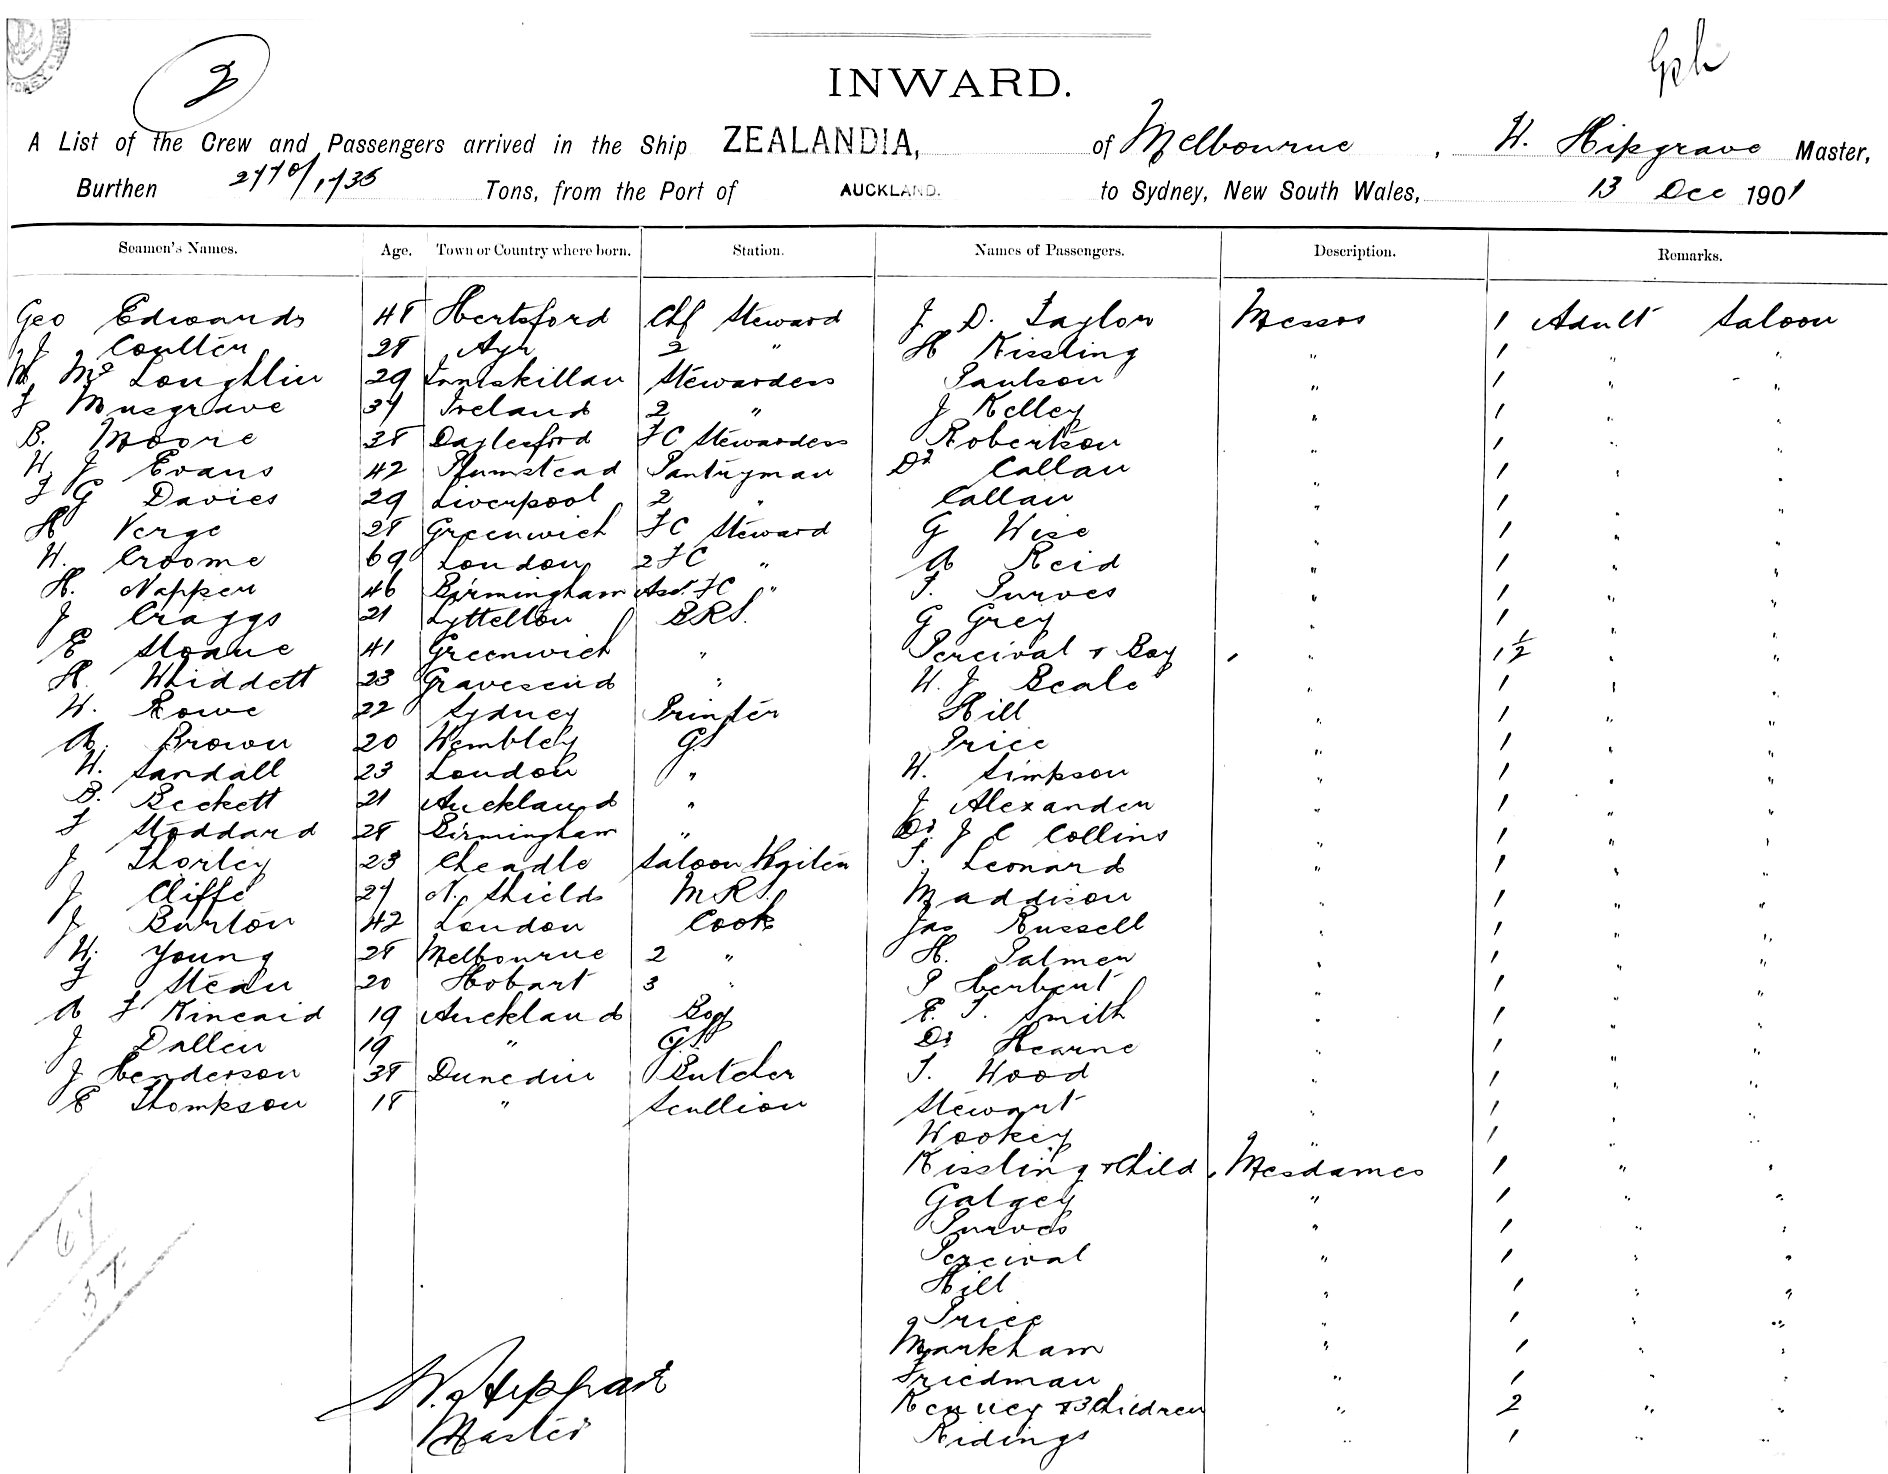 2
Gph
INWARD.
A List of the Crew and Passengers arrived in the Ship ZEALANDIA, of Melbourne, W. Hipgrave Master,
Burthen 2770/1735 Tons, from the Port of AUCKLAND. to Sydney, New South Wales, 13 Dec 1901
Seamen's Names. Age. Town or Country where born. Station. Names of Passengers. Description. Remarks.
Geo Edwards 48 Hertsford Chf Steward J. D. Taylor Messrs 1 Adult Saloon
J. Coulter 28 Ayr 2 " H Kissling " 1 " "
W. McLoughlin 29 Inniskillan Stewardess Paulson " 1 " "
F Musgrave 37 Ireland 2 " J Kelley " 1 " "
B. Moore 38 Daylesford FC Stewardess Robertson " 1 " "
W. J Evans 42 Plumstead Pantryman Dr Callan " 1 " "
F G Davies 29 Liverpool 2 " Callan " 1 " "
H Verge 28 Greenwich FC Steward G Wise " 1 " "
W. Croome 69 London 2 FC " A Reid " 1 " "
H. Napper 46 Birmingham Asst. FC " T. Purves " 1 " "
J Craggs 21 Lyttelton B.R.S. G Grey " 1 " "
E Sloane 41 Greenwich " Percival & Boy " 1 1/2 " "
H. Whiddett 23 Gravesend " W. J Beale " 1 " "
W. Rowe 22 Sydney Printer Hill " 1 " "
A. Brown 20 Wembley GS Price " 1 " "
W. Sandall 23 London " W. Simpson " 1 " "
B. Beckett 21 Auckland " J Alexander " 1 " "
F Stoddard 28 Birmingham " Dr. J C Collins " 1 " "
J Thorley 23 Cheadle Saloon Waiter T. Leonard " 1 " "
J Cliffe 27 N. Shields M.R.S. Maddison " 1 " "
J Burton 42 London Cook Jas Russell " 1 " "
W. Young 28 Melbourne 2 " H. Palmer " 1 " "
F Stean 20 Hobart 3 " P Herbert " 1 " "
A F Kincaid 19 Auckland Boy E. T. Smith " 1 " "
J Dallen 19 " G.S. Dr Hearne " 1 " "
J Henderson 38 Dunedin Butcher T. Wood " 1 " "
E Thompson 18 " Scullion Stewart " 1 " "
Wookey " 1 " "
Kissling & Child Mesdames 1 " "
Galgey " 1 " "
Purves " 1 " "
Percival " 1 " "
Hill " 1 " "
Price " 1 " "
Markham " 1 " "
Friedman " 1 " "
Kenney & 3 Children " 2 " "
Ridings " 1 " "
W. Hipgrave
Master